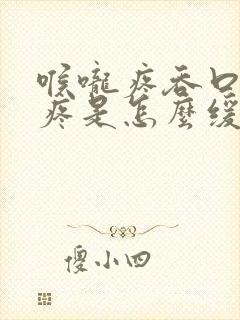 喉嚨疼吞口
疼是怎麼緩
傻小四